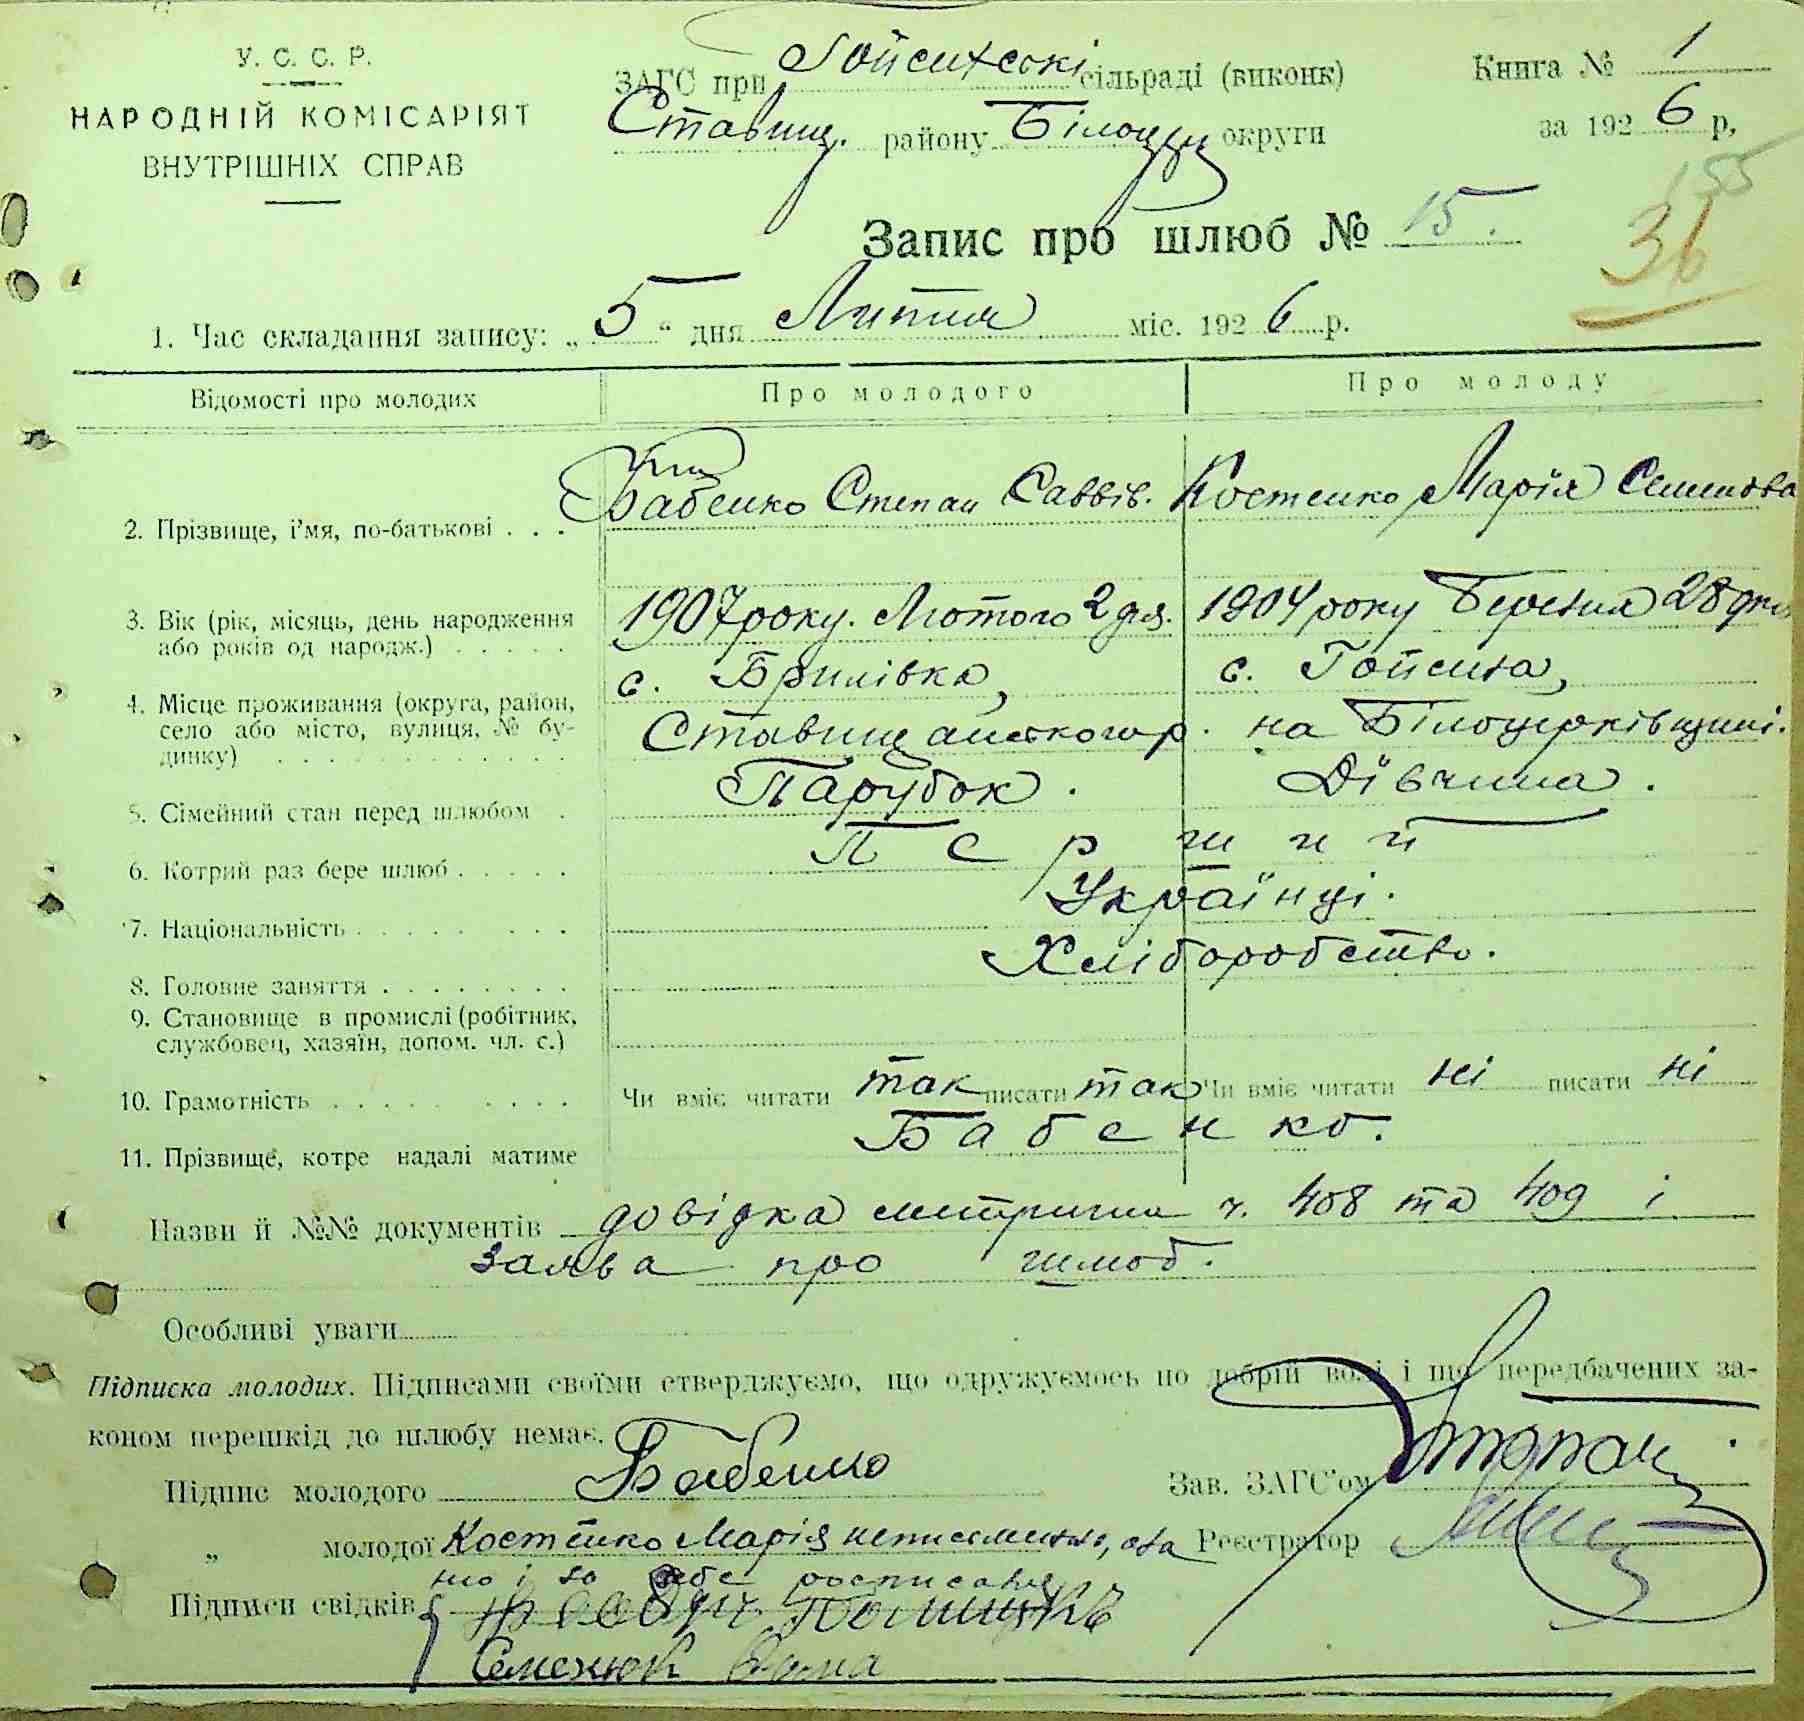 У. С. С. Р.
НАРОДНІЙ КОМІСАРІЯТ
ВНУТРІШНІХ СПРАВ
ЗАГС при сільраді (виконк)
Ставищ. району Білоцерк округи
Книга № 1
за 1926 р,
155
36
Запис про шлюб № 15.
1. Час складання запису: „5" дня Липня міс. 1926 р.
Відомості про молодих
Про молодого
Про молоду
2. Прізвище, і'мя, по-батькові . . .
Бабенко Степан Саввів.
Костенко Марія Семенова
3. Вік (рік, місяць, день народження або років од народж.) . . . . .
1907 року. Лютого 2 дня.
1904 року Березня 28 дня
4. Місце проживання (округа, район, село або місто, вулиця, № будинку) . . . . . . . . . . . .
с. Брилівка,
Ставищанського р.
с. Гойсина,
на Білоцерківщині.
5. Сімейний стан перед шлюбом .
Парубок.
Дівчина.
6. Котрий раз бере шлюб . . . . .
Перший
7. Національність . . . . . . . .
Українці.
8. Головне заняття . . . . . . . .
Хліборобство.
9. Становище в промислі (робітник, службовец, хазяїн, допом. чл. с.)
10. Грамотність . . . . . . . . . .
Чи вміє читати так писати так
Чи вміє читати ні писати ні
11. Прізвище, котре надалі матиме
Бабенко.
Назви й №№ документів довідка метрична ч. 408 та 409 і
заява про шлюб.
Особливі уваги
Підписка молодих. Підписами своїми стверджуємо, що одружуємось по добрій волі і що передбачених за-
коном перешкід до шлюбу немає.
Підпис молодого Бабенко
Зав. ЗАГС'ом
„ молодої Костенко Марія неписьменна, ота
Реєстратор
Підписи свідків
Семенюк